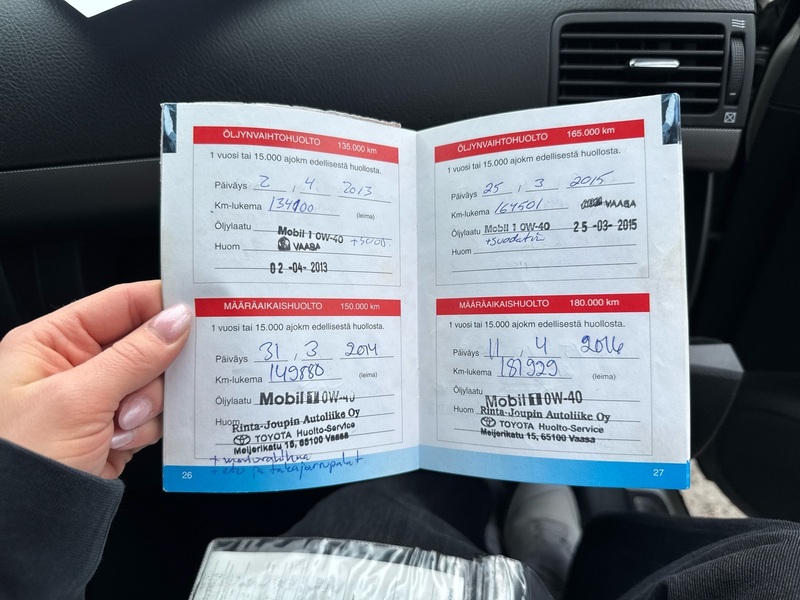 ÖLJYNVAIHTOHUOLTO 135.000 km
1 vuosi tai 15.000 ajokm edellisestä huollosta.
Päiväys 2 . 4 . 2013
Km-lukema 134100
(leima)
Öljylaatu Mobil 1 0W-40 +suod.
Huom VAASA
02-04-2013
MÄÄRÄAIKAISHUOLTO 150.000 km
1 vuosi tai 15.000 ajokm edellisestä huollosta.
Päiväys 31 . 3 2014
Km-lukema 149880
(leima)
Öljylaatu Mobil 1 0W-40
Huom Rinta-Joupin Autoliike Oy
TOYOTA Huolto-Service
Meijerikatu 15, 65100 Vaasa
+ eto ja takajarrupalat
26
ÖLJYNVAIHTOHUOLTO 165.000 km
1 vuosi tai 15.000 ajokm edellisestä huollosta.
Päiväys 25 . 3 2015
Km-lukema 164501 VAASA
Öljylaatu Mobil 1 0W-40 25-03-2015
+suodatin
Huom
MÄÄRÄAIKAISHUOLTO 180.000 km
1 vuosi tai 15.000 ajokm edellisestä huollosta.
Päiväys 11 . 4 2016
Km-lukema 181929
(leima)
Öljylaatu Mobil 1 0W-40
Huom Rinta-Joupin Autoliike Oy
TOYOTA Huolto-Service
Meijerikatu 15, 65100 Vaasa
27